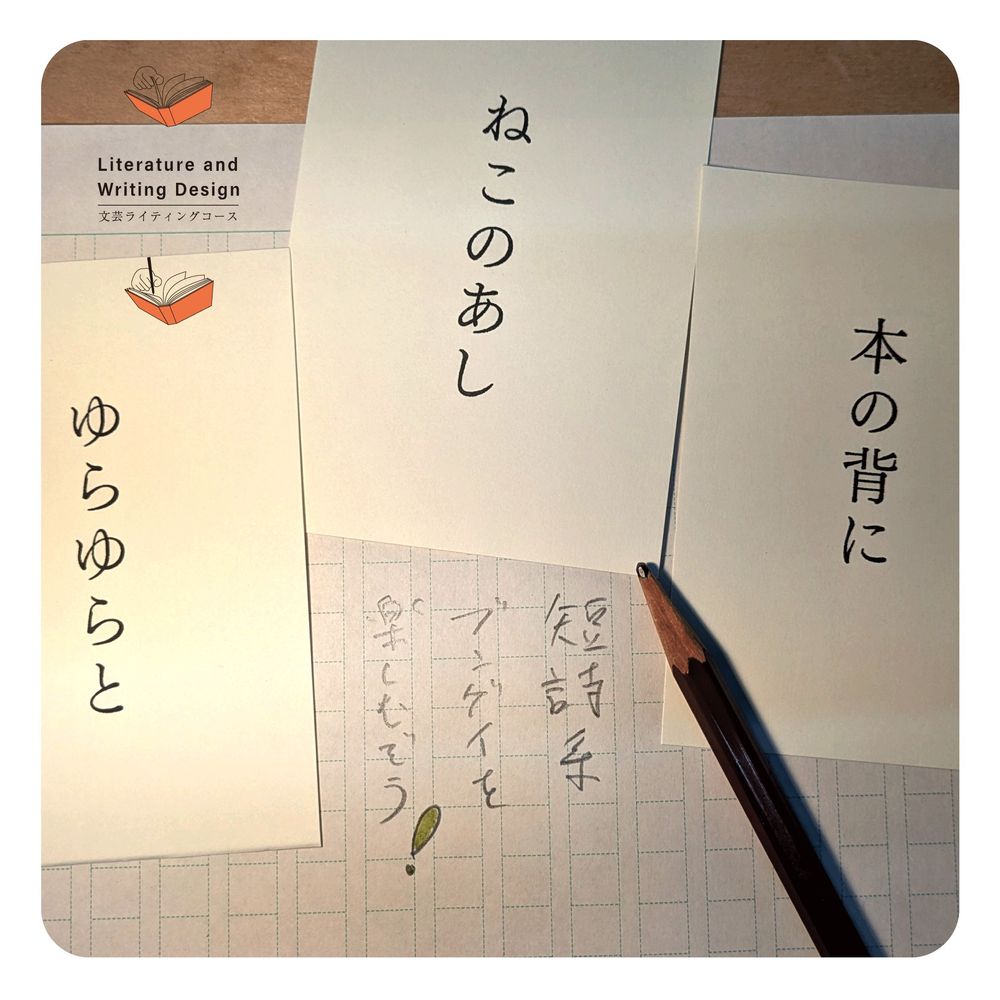 Literature and
Writing Design
文芸ライティングコース
本の背に
ねこのあし
ゆらゆらと
短詩系
ブンゲイを
楽しむぞう!